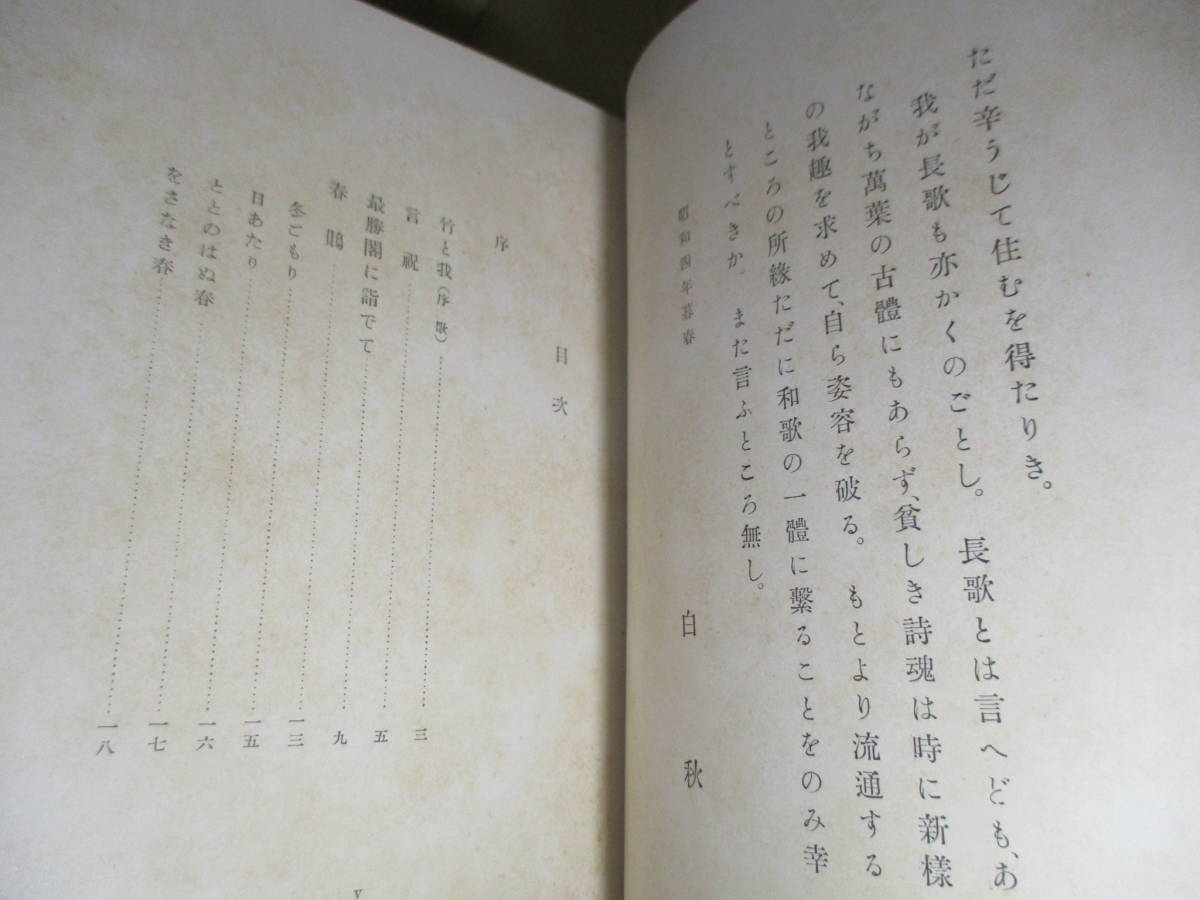 ただ辛うじて住むを得たりき。
我が長歌も亦かくのごとし。長歌とは言へども、あ
ながち萬葉の古體にもあらず、貧しき詩魂は時に新樣
の我趣を求めて、自ら姿容を破る。もとより流通する
ところの所緣ただに和歌の一體に繫ることをのみ幸
とすべきか。また言ふところ無し。
昭和四年暮春
白秋
目次
序
竹と我(序歌)…三
言祝…五
最勝閣に詣でて…九
春鵑…一三
冬ごもり…一五
日あたり…一六
ととのはぬ春…一七
をさなき春…一八
v